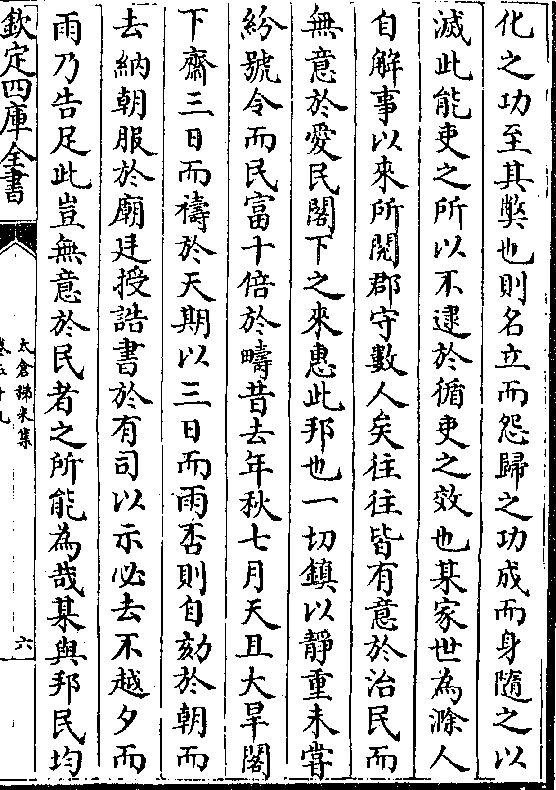 化之功至其弊也則名立而怨歸之功成而身隨之以
滅此能吏之所以不逮於循吏之效也某家世為滁人
自解事以來所閲郡守數人矣往往皆有意於治民而
無意於愛民閣下之來惠此邦也一切鎮以靜重未嘗
紛號令而民富十倍於疇昔去年秋七月天且大旱閣
下齋三日而禱於天期以三日而雨否則自劾於朝而
去納朝服於廟廷授誥書於有司以示必去不越夕而
雨乃告足此豈無意於民者之所能為哉某與邦民均
欽定四庫全書
太倉稊米集
卷五十九
六